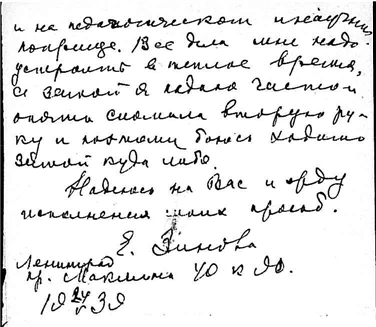 и не педагогическом и научном
поприще. Все дела мне надо
устроить в теплое время,
а зимой я падала
опять сломала вторую ру-
ку и поэтому боюсь ходить
зимой куда либо.
Надеюсь на Вас и жду
исполнения моих просьб.
Е. Зинова
Ленинград
пр. Маклина 40 к 90.
19 24/V 39